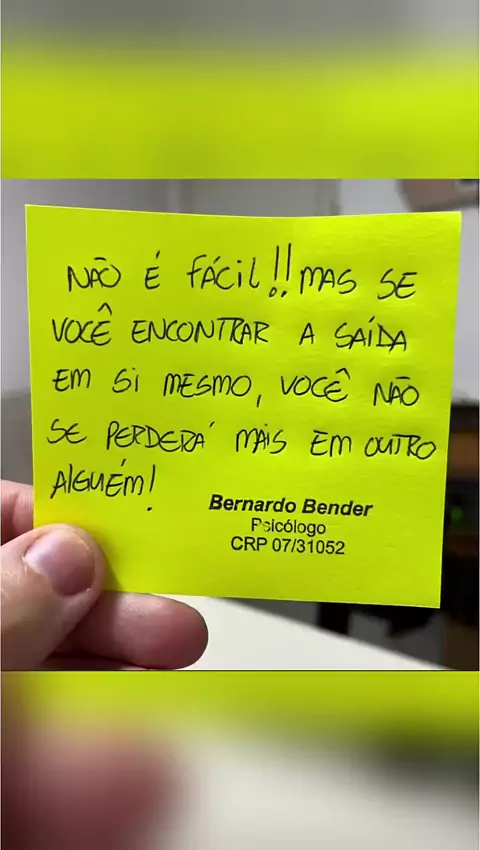 NÃO É FÁCIL!! MAS SE
VOCÊ ENCONTRAR A SAÍDA
EM SI MESMO, VOCÊ NÃO
SE PERDERÁ MAIS EM OUTRO
ALGUÉM!
Bernardo Bender
Psicólogo
CRP 07/31052